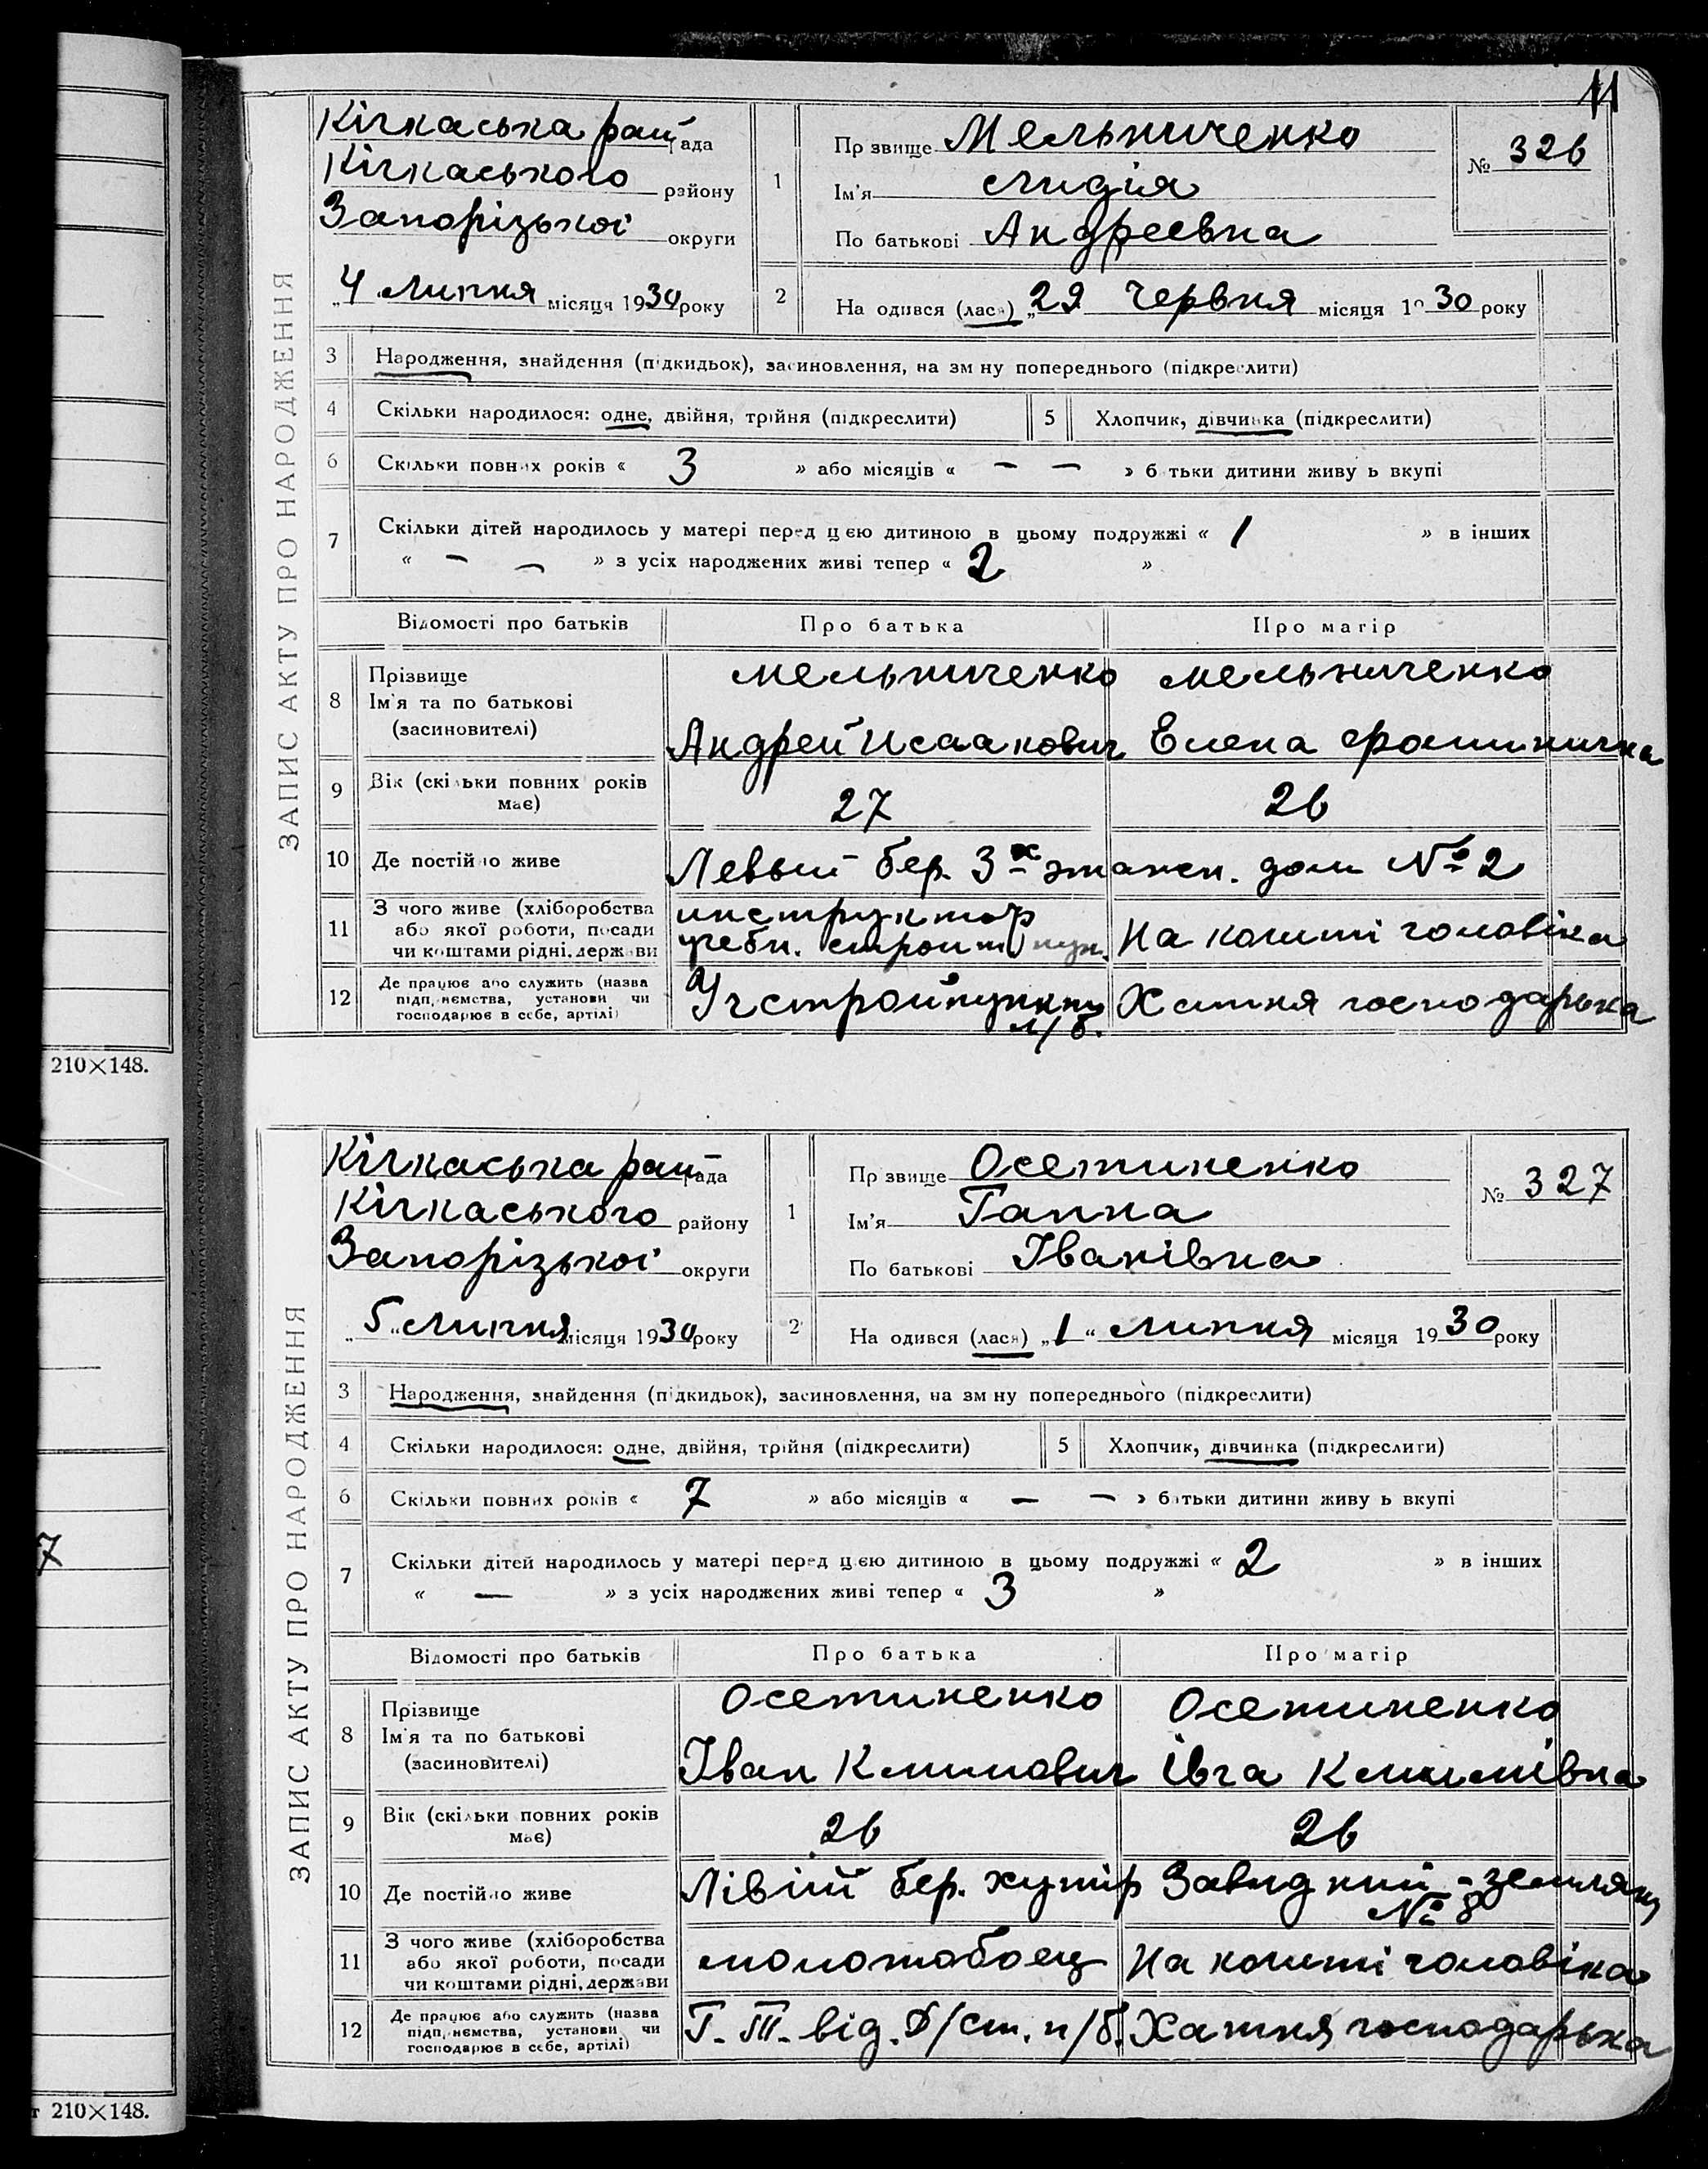 11
ЗАПИС АКТУ ПРО НАРОДЖЕННЯ
Кічкаська рай рада
Кічкаського району
Запорізької округи
„4“ Липня місяця 1930 року
1
Пр звище Мельниченко
Ім'я Лидія
По батькові Андреевна
№ 326
2
На одився (лася) „29 Червня місяця 19 30 року
3 Народження, знайдення (підкидьок), засиновлення, на зм ну попереднього (підкреслити)
4 Скільки народилося: одне, двійня, трійня (підкреслити) 5 Хлопчик, дівчинка (підкреслити)
6 Скільки повних років « 3 » або місяців « — — » б тьки дитини живу ь вкупі
7 Скільки дітей народилось у матері перед цією дитиною в цьому подружжі « 1 » в інших
« — — » з усіх народжених живі тепер « 2 »
Відомості про батьків Про батька Про матір
8 Прізвище
Ім'я та по батькові
(засиновителі)
Мельниченко Мельниченко
Андрей Исаакович Елена
9 Вік (скільки повних років має) 27 26
10 Де постійно живе Левый бер. 3х этажн. дом № 2
11 З чого живе (хліборобства
або якої роботи, посади
чи коштами рідні, держави
инструктор
учебн. строит пун. На кошті чоловіка
12 Де працює або служить (назва
підп, иємства, установи чи
господарює в себе, артілі)
Учстройпункт л/б. Хатня господарька
210×148.
ЗАПИС АКТУ ПРО НАРОДЖЕННЯ
Кічкаська рай рада
Кічкаського району
Запорізької округи
„5“ Липня місяця 1930 року
1
Пр звище Осетиненко
Ім'я Ганна
По батькові Іванівна
№ 327
2
На одився (лася) „1“ Липня місяця 1930 року
3 Народження, знайдення (підкидьок), засиновлення, на зм ну попереднього (підкреслити)
4 Скільки народилося: одне, двійня, трійня (підкреслити) 5 Хлопчик, дівчинка (підкреслити)
6 Скільки повних років « 7 » або місяців « — — » батьки дитини живу ь вкупі
7 Скільки дітей народилось у матері перед цією дитиною в цьому подружжі « 2 » в інших
« — » з усіх народжених живі тепер « 3 »
7
Відомості про батьків Про батька Про матір
8 Прізвище
Ім'я та по батькові
(засиновителі)
Осетиненко Осетиненко
Іван Климович Івга Климівна
9 Вік (скільки повних років має) 26 26
10 Де постійно живе Лівій бер. хутір
№ 8
11 З чого живе (хліборобства
або якої роботи, посади
чи коштами рідні, держави
молотобоец На кошті чоловіка
12 Де працює або служить (назва
підп, иємства, установи чи
господарює в себе, артілі)
від. Д/ст. л/б. Хатня господарька
т 210×148.